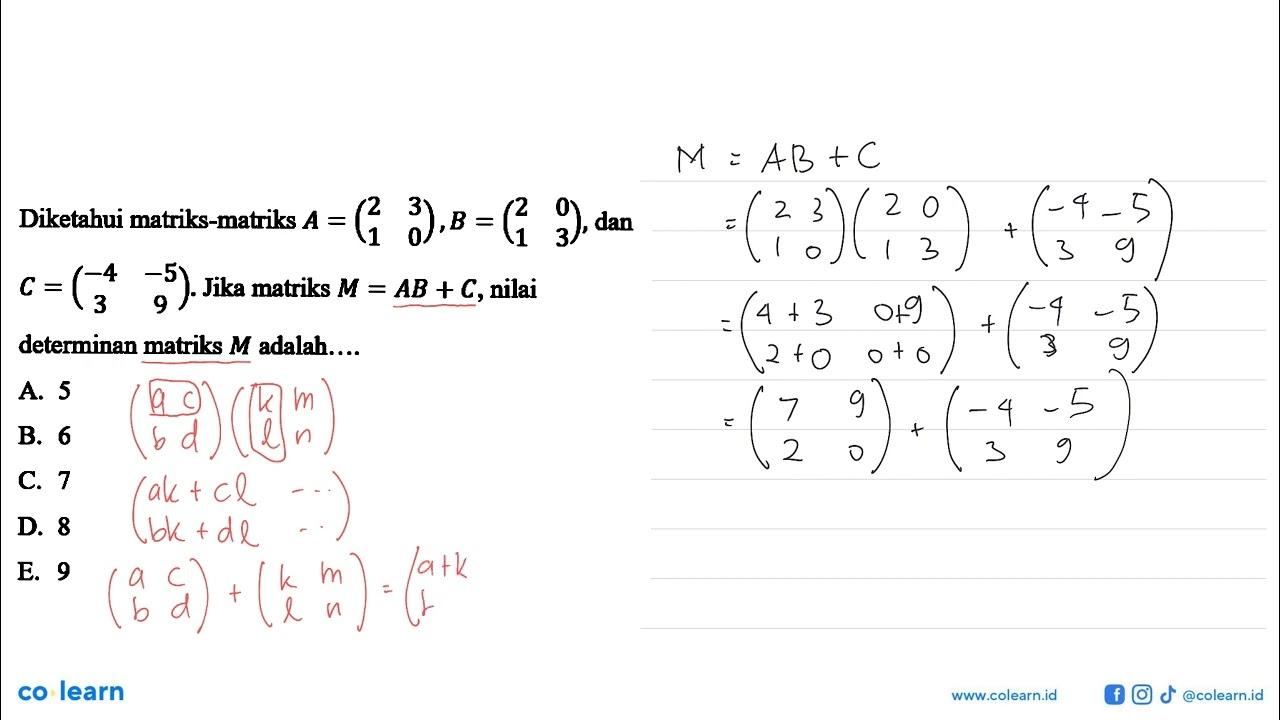 Diketahui matriks-matriks A = (2 3 / 1 0), B = (2 0 / 1 3), dan
C = (−4 −5 / 3 9). Jika matriks M = AB + C, nilai
determinan matriks M adalah….
A. 5
B. 6
C. 7
D. 8
E. 9
(a c / b d) (k m / l n)
(ak + cl ... / bk + dl ..)
(a c / b d) + (k m / l n) = (a+k
M = AB + C
= (2 3 / 1 0) (2 0 / 1 3) + (−4 −5 / 3 9)
= (4 + 3 0+9 / 2+0 0+0) + (−4 −5 / 3 9)
= (7 9 / 2 0) + (−4 −5 / 3 9)
co learn
www.colearn.id
@colearn.id